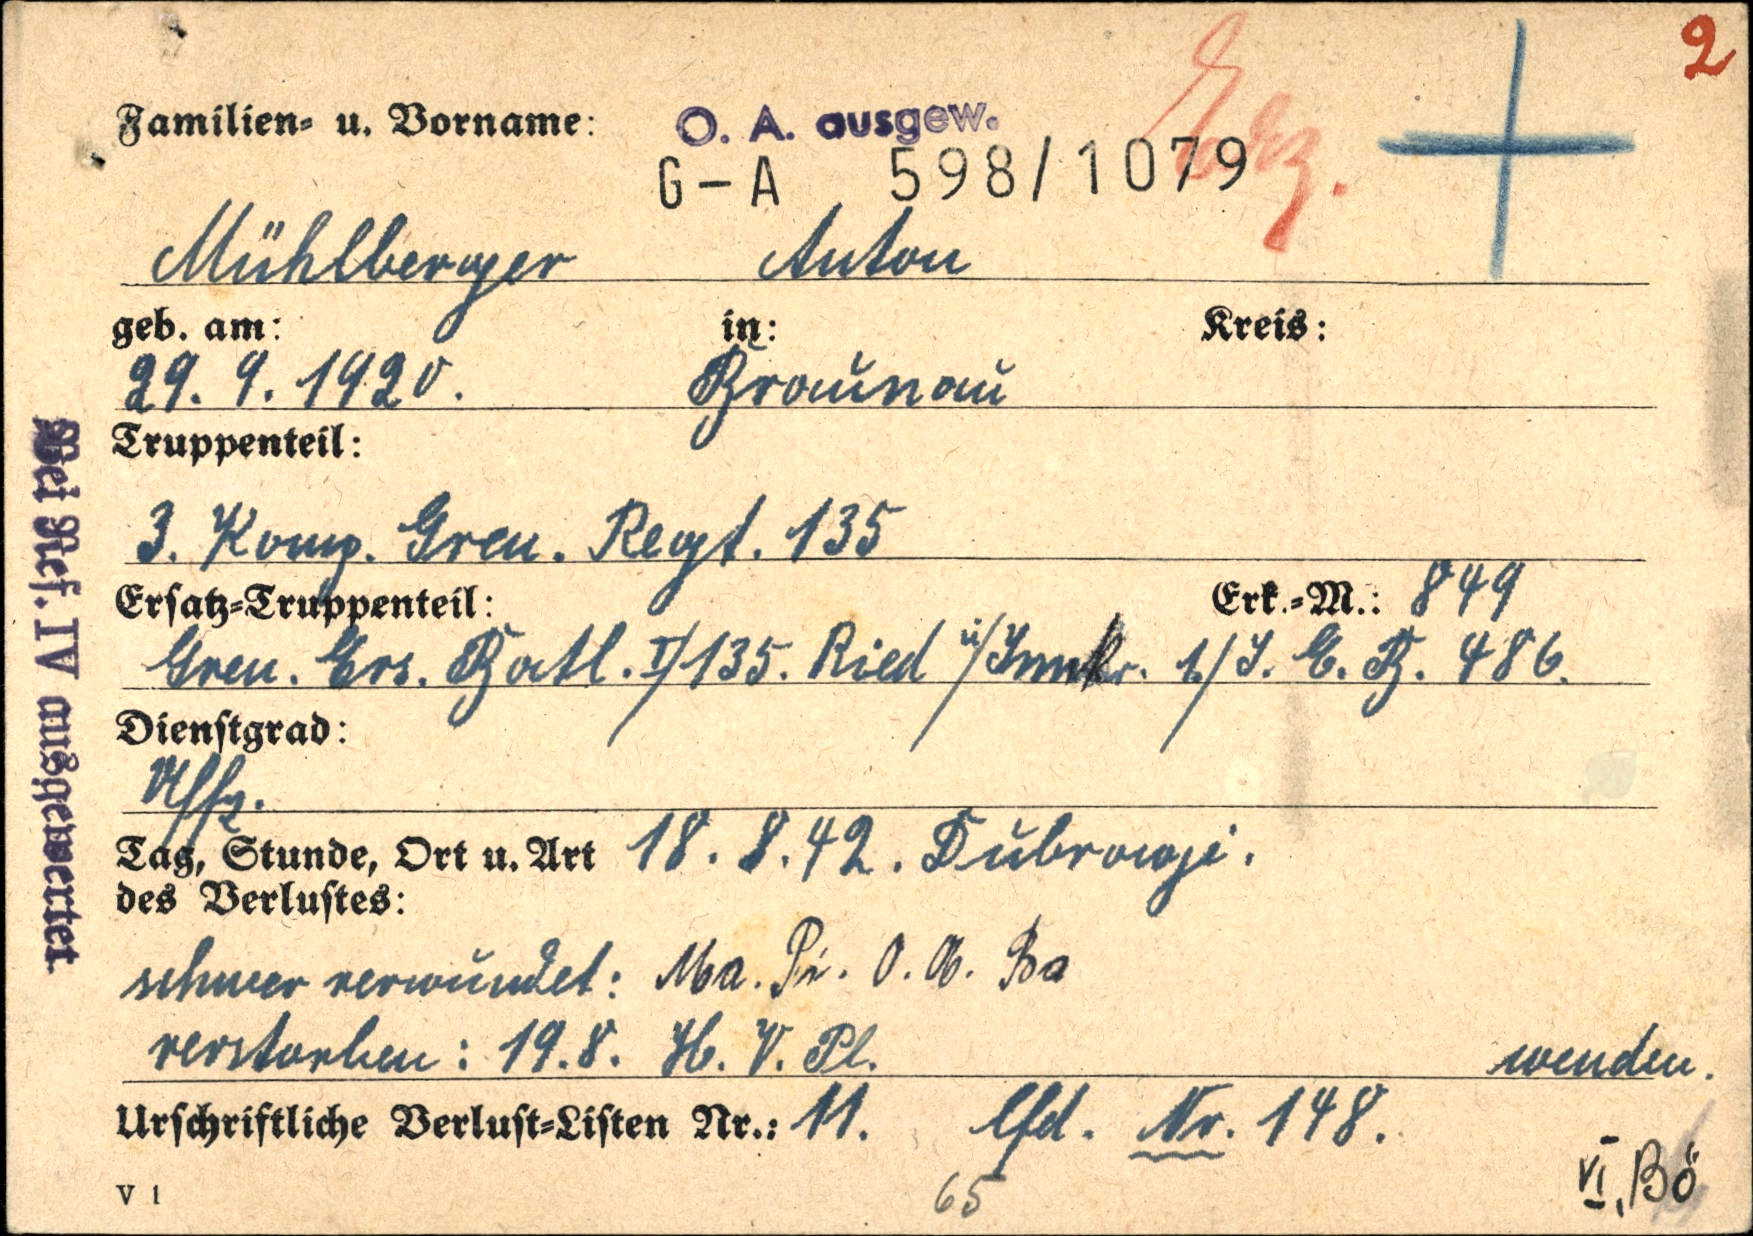 2
Familien- u. Vorname:
O. A. ausgew.
G-A 598/1079
Mühlberger Anton
geb. am: in: Kreis:
29. 9. 1920. Braunau
Truppenteil:
3. Komp. Gren. Regt. 135
Ersatz-Truppenteil: Erk.-M.: 849
Gren. Ers. Batl. I/135. Ried 1/J. E. B. 486.
Dienstgrad:
Uffz.
Tag, Stunde, Ort u. Art 18. 8. 42. Dubrowgi.
des Verlustes:
schwer verwundet: Ma. Pi. O. A. Ba
verstorben: 19. 8. H. V. Pl. wenden.
Urschriftliche Verlust-Listen Nr.: 11. lfd. Nr. 148.
VI, Bö
V 1
65
Bei Ref. IV ausgewertet